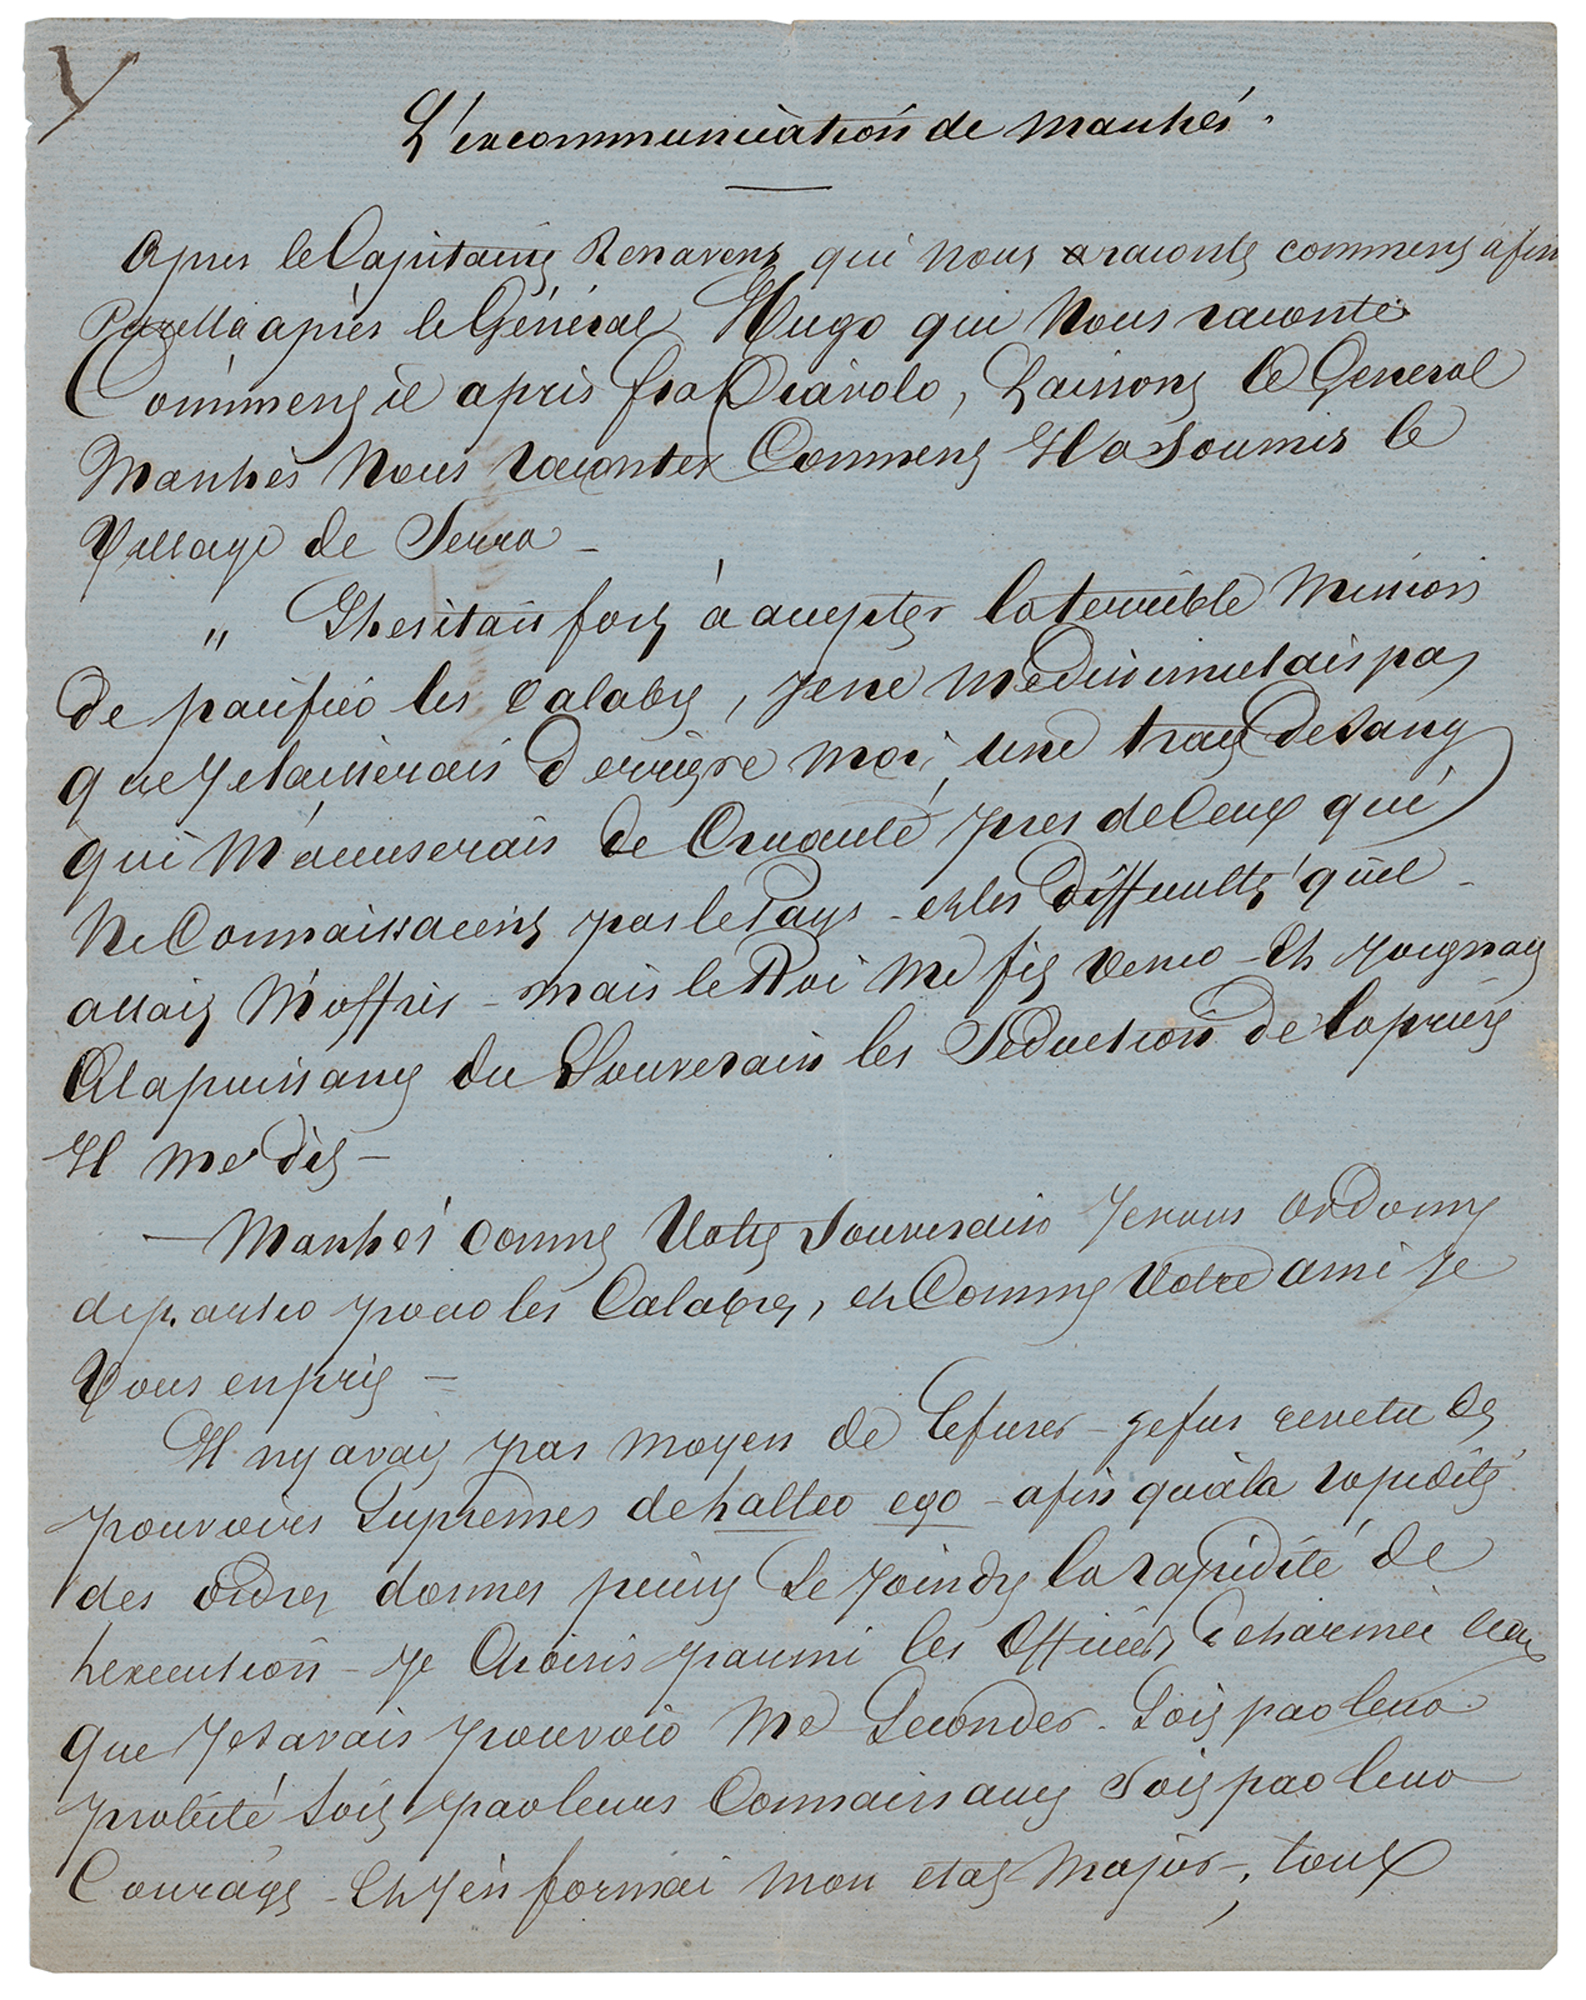 L'excommunication de Manhés.
Apres le Capitaine Renavent qui nous raconte comment a fini
Parella après le Général Hugo qui Nous raconte
Comment il a pris fra Diavolo, Laissons le General
Manhès Nous raconter Comment Il a Soumis le
Village de Serra –
" J'hesitais fort à accepter la terrible Mission
de pacifier les Calabres, je ne me dissimulais pas
que je laisserais derrière moi, une trace de sang
qui M'accuserais de Cruauté pres de Ceux qui
Ne Connaissaient pas le Pays – et les difficultés qu'il
allait M'offrir – mais le Roi me fit venir – Et joignant
A la puissance du Souverain les Seduction de la prière
Il me dit –
– Manhés comme Votre Souverain Je vous ordonne
de partir pour les Calabres, et Comme Votre ami je
Vous en prie –
Il n'y avait pas moyen de refuser – je fus revetu des
pouvoirs Supremes de halter ego – afin qu'à la rapidité
des ordres donnes puisse Se joindre la rapidité de
l'execution – je choisis parmi les officiers de l'armée ceux
que je savais pouvoir me Seconder – Soit par leur
probité Soit par leurs Connaissances Soit par leur
Courage – Et j'en formai mon etat-Major –, tous